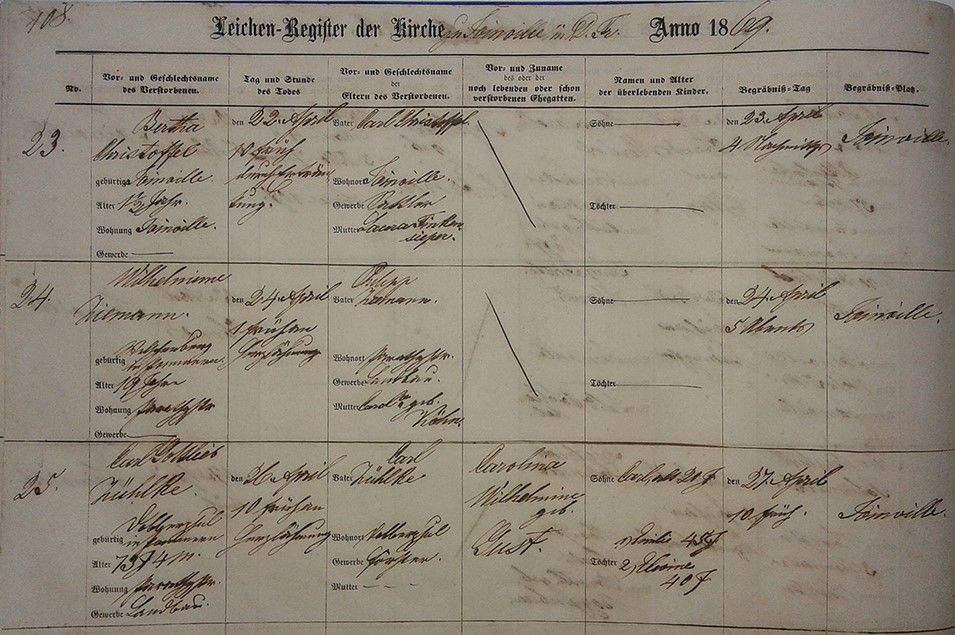 108.
Leichen-Register der Kirche zu Joinville in D. Fr. Anno 1869.
No.
Vor- und Geschlechtsname des Verstorbenen.
Tag und Stunde des Todes
Vor- und Geschlechtsname der Eltern des Verstorbenen.
Vor- und Zuname des oder der noch lebenden oder schon verstorbenen Ehegatten.
Namen und Alter der überlebenden Kinder.
Begräbniß-Tag
Begräbniß-Platz.
23.
Bertha
Christoffel
gebürtig Joinville.
Alter 1½ Jahr.
Wohnung Joinville.
Gewerbe —
den 22. April
10 früh
durch
Vater Carl Christoffel.
Wohnort Joinville.
Gewerbe Sattler
Mutter Laura Finken-
sieper.
Söhne —
Töchter —
den 23. April
4 Nachmittg
Joinville.
24.
Wilhelmine
Ziemann.
gebürtig
in Pommern.
Alter 19 Jahre
Wohnung
Gewerbe —
den 24. April
1 früh an
Vater Philipp
Ziemann.
Wohnort
Gewerbe Landbau.
Mutter geb.
Söhne —
Töchter —
den 24. April
5 Abends
Joinville.
25.
Carl Gottlieb
Zühlke.
gebürtig
in Pommern
Alter
Wohnung
Gewerbe Landbau.
den 26. April
10 früh an
Vater Carl
Zühlke
Wohnort
Gewerbe Förster.
Mutter — —
Carolina
Wilhelmine
geb.
Lust.
Söhne Carl, alt
Töchter 1) Emilie 45 J
2)
40 J
den 27. April
10 früh.
Joinville.